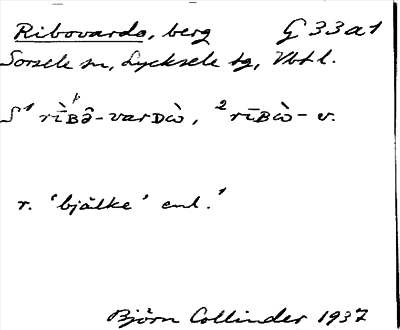 Ribovardo, berg G 33a1
Sorsele sn, Lycksele tg, Vbtl.
S ¹ rī̀ʙə̑-varᴅὼ, ² rīʙὼ-v.
r. 'bjälke' enl. ¹
Björn Collinder 1937